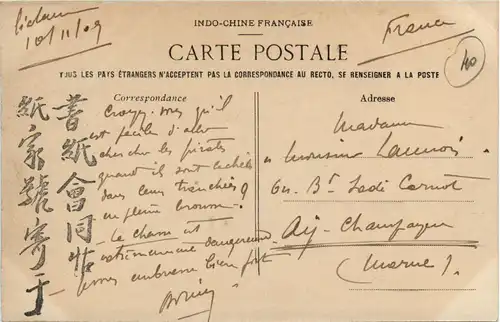 10/11/09
INDO-CHINE FRANÇAISE
France
CARTE POSTALE
40
TOUS LES PAYS ÉTRANGERS N'ACCEPTENT PAS LA CORRESPONDANCE AU RECTO, SE RENSEIGNER A LA POSTE
Correspondance
Croyez-vous qu'il
est facile d'aller
chercher les pirates
quand ils sont cachés
dans leurs tranchées
en pleine brousse ?
La chasse est
dangereuse
vous embrasse bien fort
書紙會同
紙家號寄于
Adresse
Madame
Monsieur Launois
Bd Sadi Carnot
Aÿ-Champagne
(Marne).